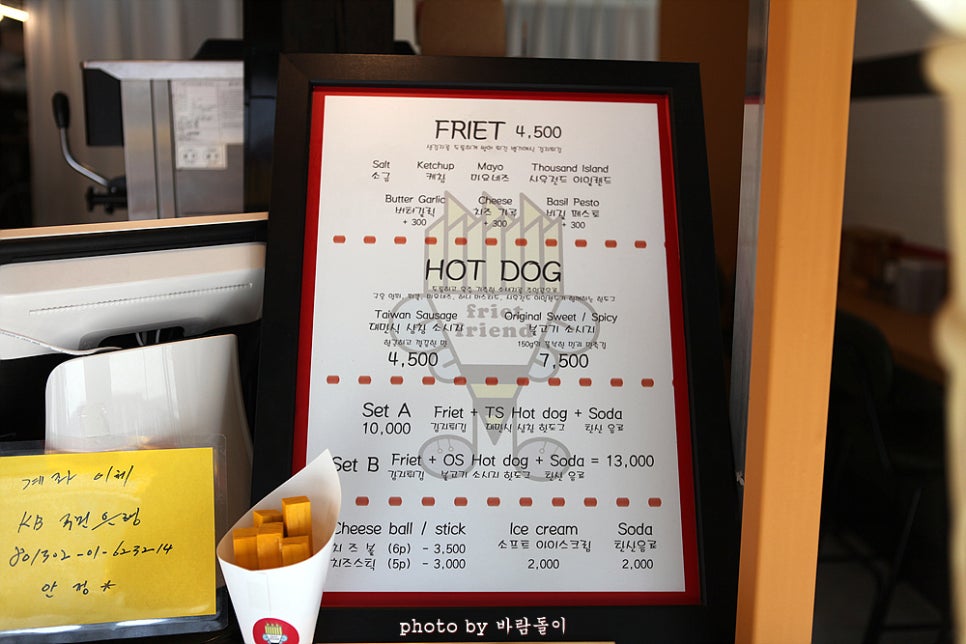 FRIET 4,500
Salt Ketchup Mayo Thousand Island
소금 케찹 마요네즈 사우전드 아일랜드
Butter Garlic Cheese Basil Pesto
버터갈릭 치즈 가루 바질 페스토
+ 300 + 300 + 300
HOT DOG
friet
friends
Taiwan Sausage Original Sweet / Spicy
대만식 삼칠 소시지 불고기 소시지
4,500 7,500
Set A Friet + TS Hot dog + Soda
10,000 감자튀김 대만식 삼칠 핫도그 탄산 음료
Set B Friet + OS Hot dog + Soda = 13,000
감자튀김 불고기 소시지 핫도그 탄산 음료
Cheese ball / stick Ice cream Soda
치즈 볼 (6p) - 3,500 소프트 아이스크림 탄산음료
치즈스틱 (5p) - 3,000 2,000 2,000
계좌 이체
KB 국민은행
801302-01-623214
photo by 바람돌이